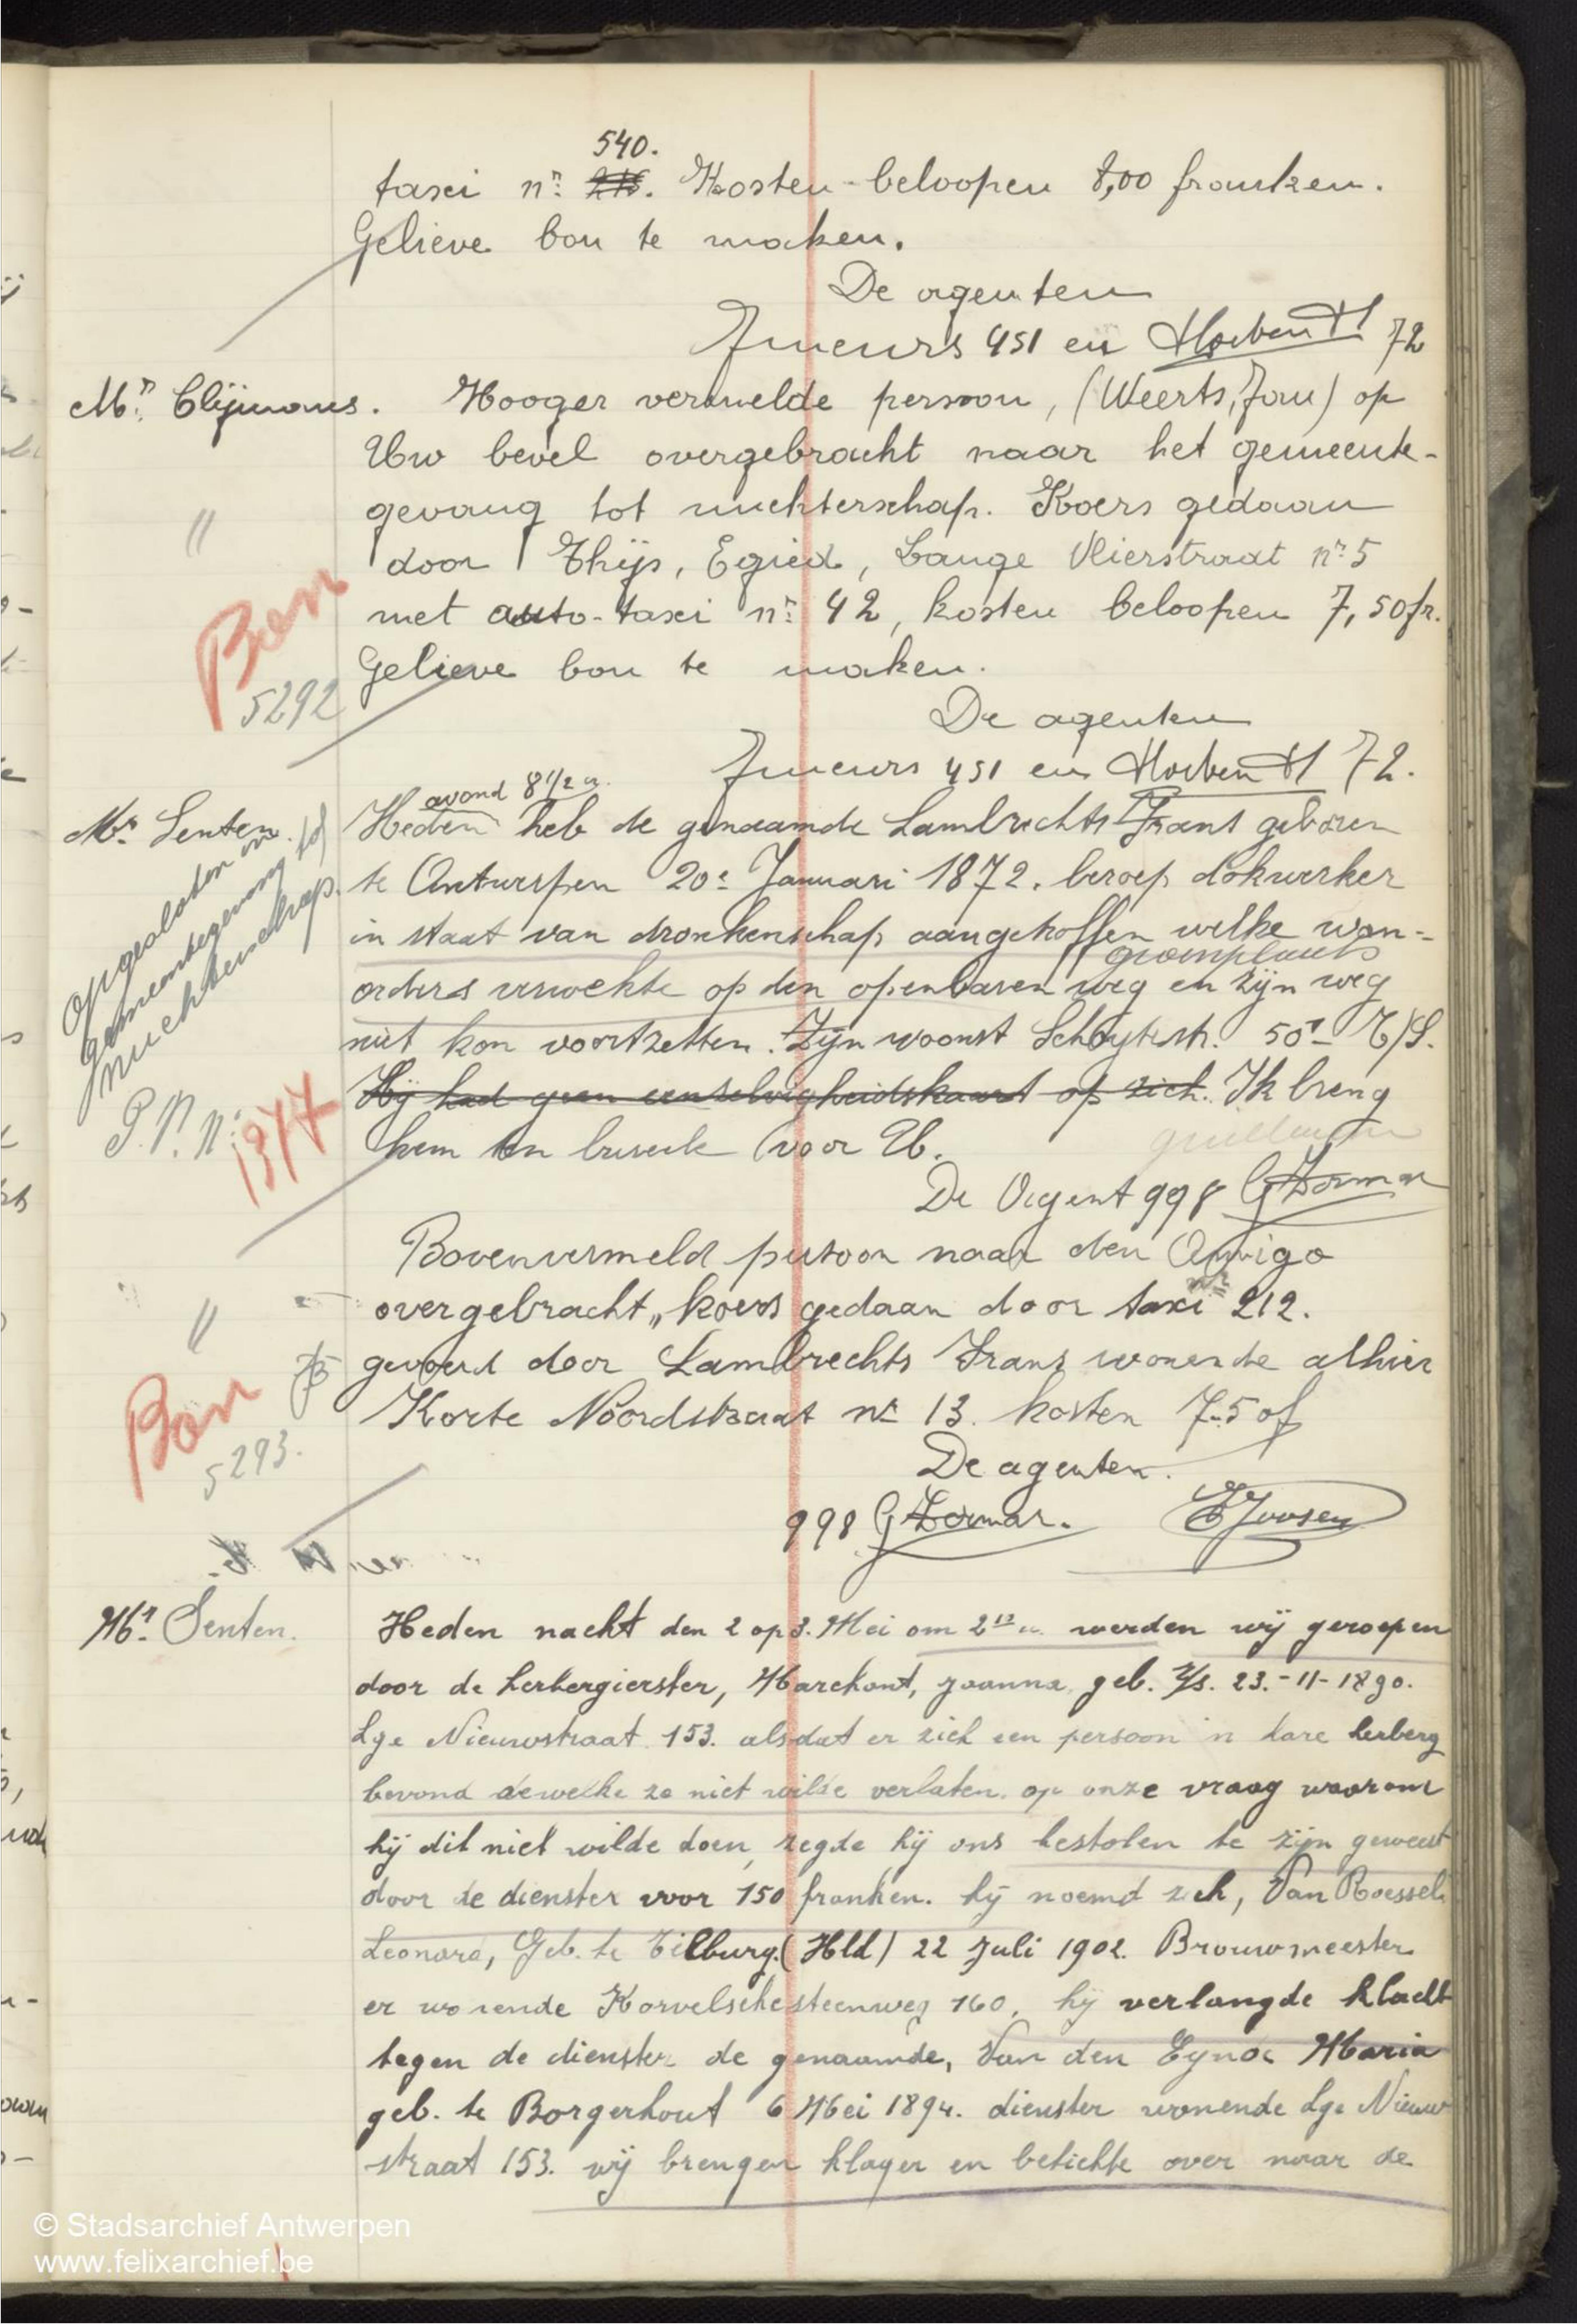 540.
taxi nr. Kosten beloopen 8,00 franken.
Gelieve bon te maken.
De agenten
451 en 72
Mr. Clijmans. Hooger vermelde persoon, (Weerts, Jan) op
Uw bevel overgebracht naar het gemeente-
gevang tot nuchterschap. Koers gedaan
"
door Thijs, Egied, Lange Vlierstraat nr. 5
met auto-taxi nr. 42, kosten beloopen 7,50 fr.
Bon
Gelieve bon te maken.
5292
De agenten
451 en 72.
avond 8 1/2 u.
Mr. Senten. Heden heb de genaamde Lambrechts Frans geboren
opgesloten in
gemeentegevang tot
nuchterschap.
te Antwerpen 20e Januari 1872. beroep dokwerker
in staat van dronkenschap aangetroffen welke wan-
groenplaats
orders verwekte op den openbaren weg en zijn weg
niet kon voortzetten. Zijn woonst Schoytestr. 50r T/S.
P.V. n:
1377
Hij had geen eenzelvigheidskaart op zich. Ik breng
hem ten bureele voor U.
De Agent 998 G
Bovenvermeld persoon naar den Amigo
nr
overgebracht, koers gedaan door taxi 212.
"
gevoerd door Lambrechts Frans wonende alhier
Bon
Korte Noordstraat nr 13. kosten 7.50f
5293.
De agenten.
998 G E Joosen
Mr. Senten. Heden nacht den 2 op 3. Mei om 2 u. werden wij geroepen
door de herbergierster, Marchant, Joanna, geb. T/s. 23.-11-1890.
Lge Nieuwstraat 153. alsdat er zich een persoon in hare herberg
bevond dewelke ze niet wilde verlaten. op onze vraag waarom
hij dit niet wilde doen, zegde hij ons bestolen te zijn geweest
door de dienster voor 150 franken. hij noemd zich, Van Roessel
Leonard, Geb. te Tilburg. (Hld) 22 Juli 1902. Brouwmeester
er wonende Korvelschesteenweg 160. hij verlangde klacht
tegen de dienster de genaamde, Van den Eynde Maria
geb. te Borgerhout 6 Mei 1894. dienster wonende Lge Nieuw
straat 153. wij brengen klager en betichte over naar de
© Stadsarchief Antwerpen
www.felixarchief.be